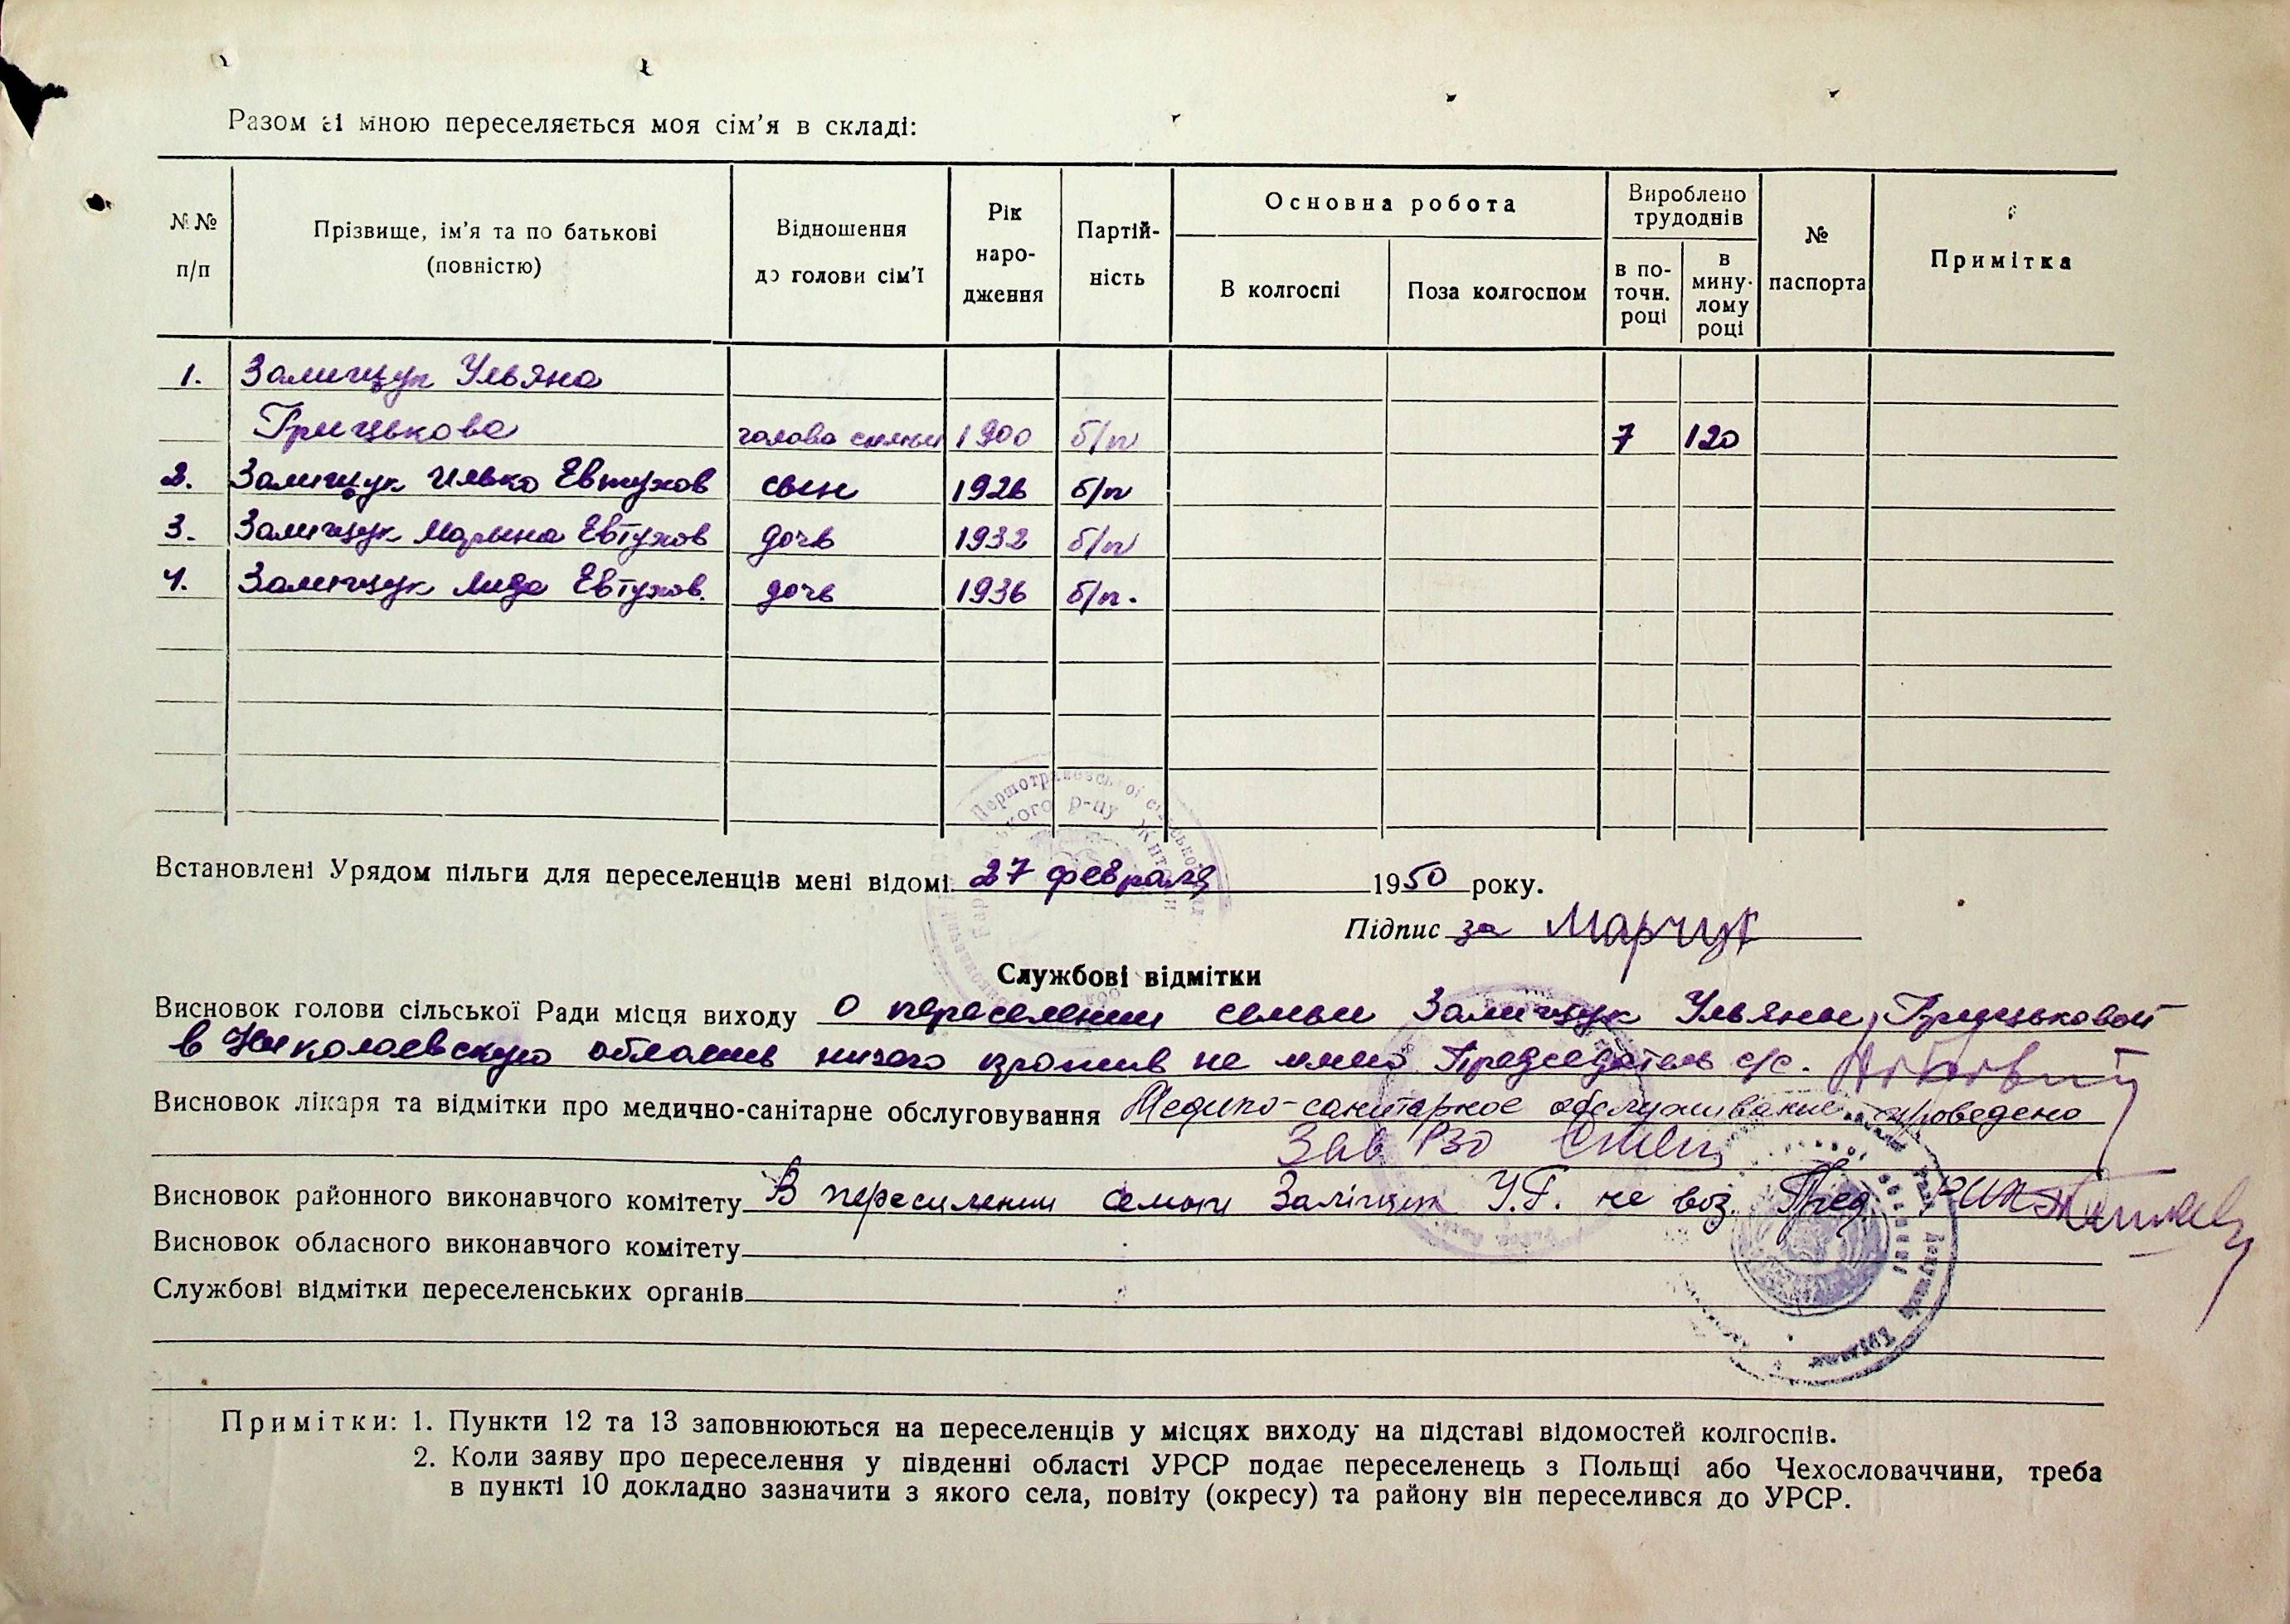 Разом зі мною переселяється моя сім'я в складі:
№№ п/п
Прізвище, ім'я та по батькові (повністю)
Відношення до голови сім'ї
Рік наро-дження
Партій-ність
Основна робота
В колгоспі
Поза колгоспом
Вироблено трудоднів
в по-точн. році
в мину-лому році
№ паспорта
Примітка
1. Залищук Ульяна
Грицькова голова семьи 1900 б/п 7 120
2. Залищук Илько Евтухов сын 1926 б/п
3. Залищук Марына Евтухов дочь 1932 б/п
4. Залищук Лида Евтухов. дочь 1936 б/п.
Встановлені Урядом пільги для переселенців мені відомі 27 февраля 1950 року.
Підпис за Марчук
Службові відмітки
Висновок голови сільської Ради місця виходу О переселении семьи Залищук Ульяны Грицьковой
в Николаевскую область ничего против не имею Председатель с/с.
Висновок лікаря та відмітки про медично-санітарне обслуговування Медико-санитарное обслуживание проведено
Зав РЗО
Висновок районного виконавчого комітету В переселении семьи Заліщук У.Г. не воз. Пред. РИК
Висновок обласного виконавчого комітету
Службові відмітки переселенських органів
Примітки: 1. Пункти 12 та 13 заповнюються на переселенців у місцях виходу на підставі відомостей колгоспів.
2. Коли заяву про переселення у південні області УРСР подає переселенець з Польщі або Чехословаччини, треба
в пункті 10 докладно зазначити з якого села, повіту (окресу) та району він переселився до УРСР.